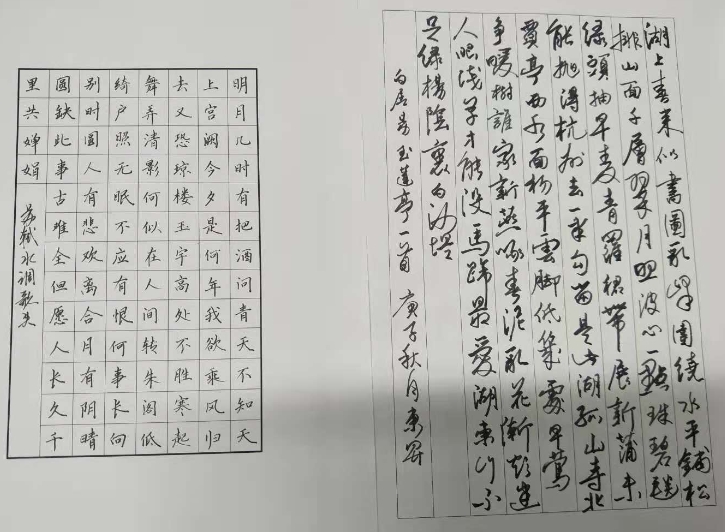 湖上春来似畫圖乱峰圍繞水平鋪松
排山面千層翠月照波心一點珠碧毯
綠頭抽早麦青羅裙帶展新蒲未
能抛得杭州去一半勾留是此湖孤山寺北
賈亭西水面初平雲脚低幾處早鶯
争暖樹誰家新燕啄春泥乱花漸欲迷
人眼浅草才能没馬蹄最愛湖東行不
足绿楊陰裏白沙堤
白居易玉蓮亭一首 庚子秋月東
明月几时有把酒问青天不知天
上宫阙今夕是何年我欲乘风归
去又恐琼楼玉宇高处不胜寒起
舞弄清影何似在人间转朱阁低
绮户照无眠不应有恨何事长向
别时圆人有悲欢离合月有阴晴
圆缺此事古难全但愿人长久千
里共婵娟 苏轼水调歌头